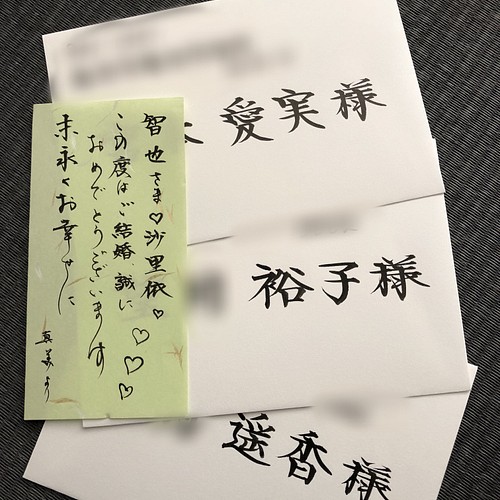 智也さま♡沙里依♡
この度はご結婚誠に
おめでとうございます
末永くお幸せに
真美より
愛実様
裕子様
遥香様